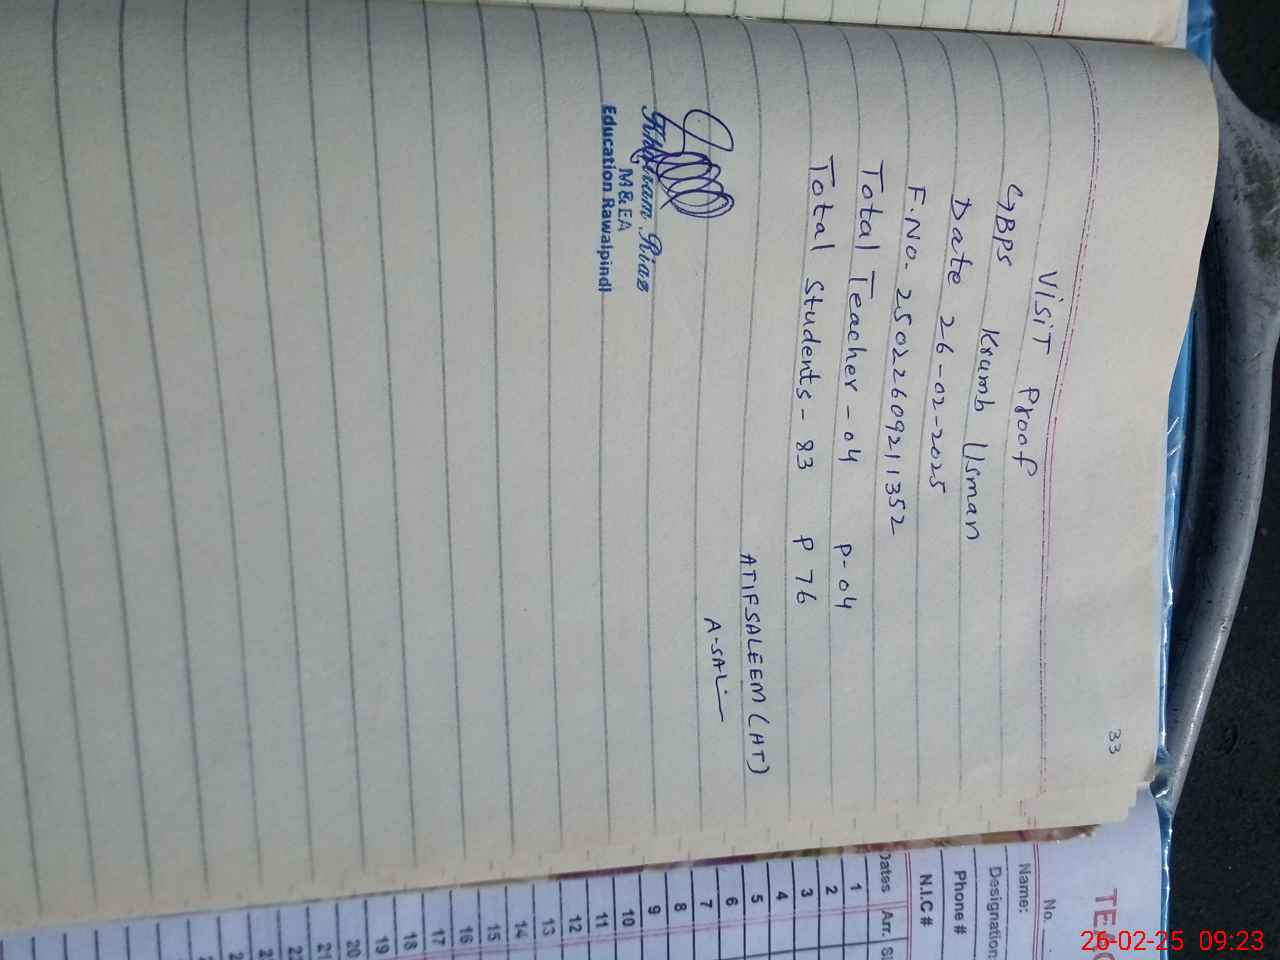 33
Visit Proof
GBPS Krumb Usman
Date 26-02-2025
F.No. 25022609211352
Total Teacher - 04 P-04
Total Students - 83 P 76
ATIF SALEEM (HT)
A-SAL
Khurram Riaz
M & EA
Education Rawalpindi
No.
Name:
Designation
Phone #
N.I.C #
Dates Arr.
1
2
3
4
5
6
7
8
9
10
11
12
13
14
15
16
17
18
19
20
21
22
23
26-02-25 09:23